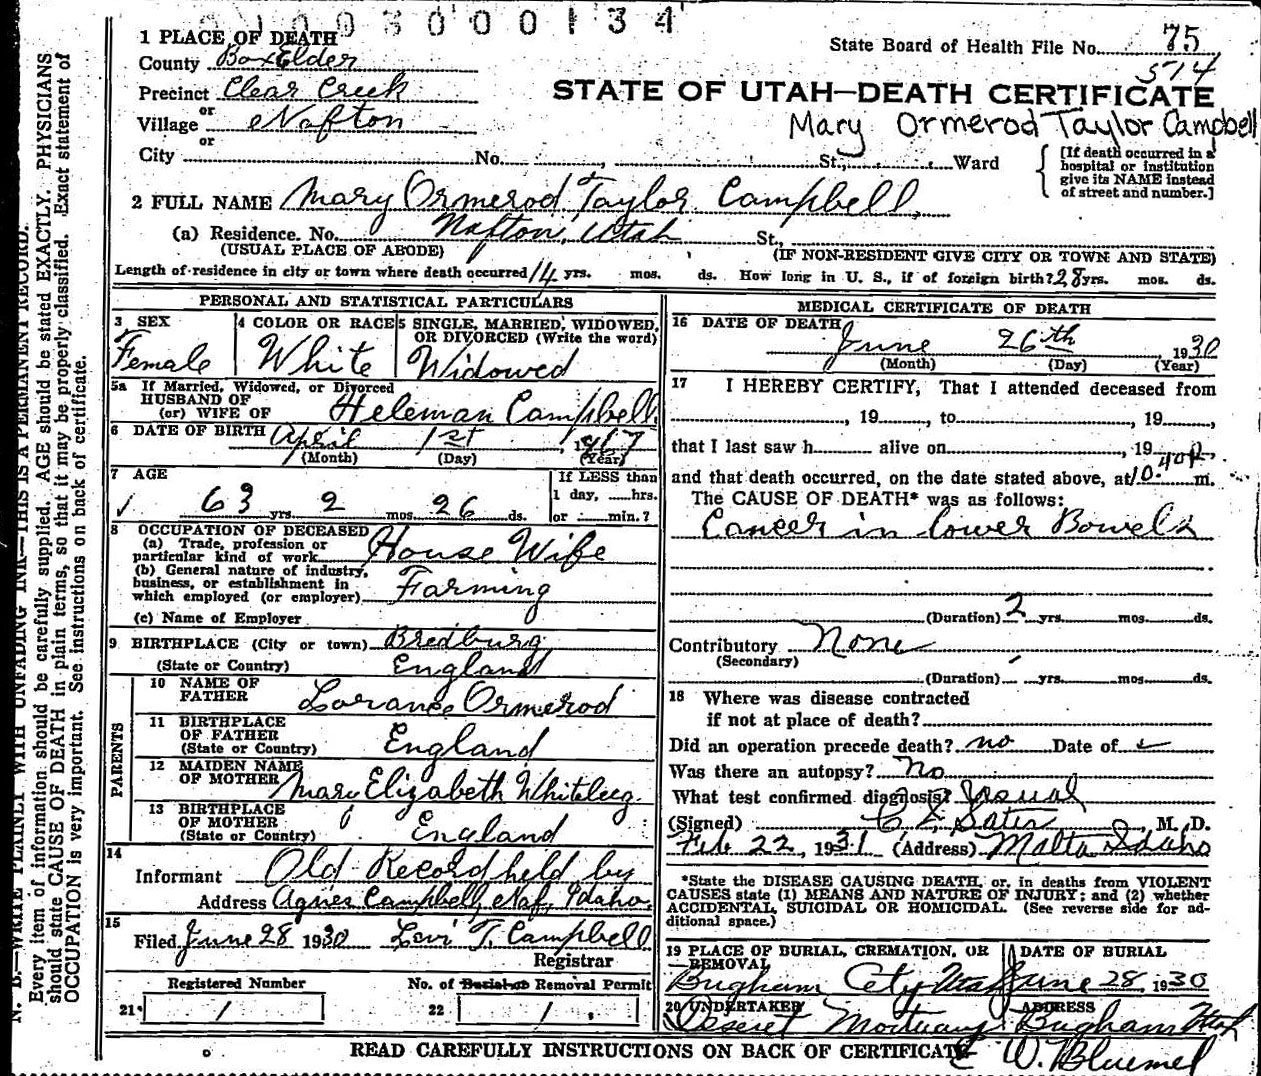 0 0 3 0 0 0 1 3 4
1 PLACE OF DEATH
State Board of Health File No. 75
574
County Box Elder
Precinct Clear Creek
STATE OF UTAH—DEATH CERTIFICATE
or
Village Nafton
Mary Ormerod Taylor Campbell
or
City No. , St., Ward
[If death occurred in a hospital or institution give its NAME instead of street and number.]
2 FULL NAME Mary Ormerod Taylor Campbell
(a) Residence. No. Nafton, Utah St.,
(USUAL PLACE OF ABODE) (IF NON-RESIDENT GIVE CITY OR TOWN AND STATE)
Length of residence in city or town where death occurred 14 yrs. mos. ds. How long in U. S., if of foreign birth? 28 yrs. mos. ds.
PERSONAL AND STATISTICAL PARTICULARS
3 SEX
Female
4 COLOR OR RACE
White
5 SINGLE, MARRIED, WIDOWED,
OR DIVORCED (Write the word)
Widowed
5a If Married, Widowed, or Divorced
HUSBAND OF
(or) WIFE OF Heleman Campbell
6 DATE OF BIRTH April 1st
(Month) (Day) (Year)
7 AGE
63 yrs. 2 mos. 26 ds.
If LESS than
1 day, hrs.
or min.?
8 OCCUPATION OF DECEASED
(a) Trade, profession or
particular kind of work House Wife
(b) General nature of industry,
business, or establishment in
which employed (or employer) Farming
(c) Name of Employer
9 BIRTHPLACE (City or town) Bredburg
(State or Country) England
PARENTS
10 NAME OF
FATHER Lorance Ormerod
11 BIRTHPLACE
OF FATHER
(State or Country) England
12 MAIDEN NAME
OF MOTHER Mary Elizabeth Whiteleg
13 BIRTHPLACE
OF MOTHER
(State or Country) England
14
Informant Old Record held by
Address Agnes Campbell, Naf, Idaho.
15
Filed June 28 1930 Levi T. Campbell
Registrar
Registered Number
21 1
No. of Burial or Removal Permit
22 1
MEDICAL CERTIFICATE OF DEATH
16 DATE OF DEATH
June 26th 1930
(Month) (Day) (Year)
17 I HEREBY CERTIFY, That I attended deceased from
, 19 , to , 19 ,
that I last saw h alive on , 19
and that death occurred, on the date stated above, at 10:40 P. m.
The CAUSE OF DEATH* was as follows:
Cancer in lower Bowels
(Duration) 2 yrs. mos. ds.
Contributory None
(Secondary)
(Duration) yrs. mos. ds.
18 Where was disease contracted
if not at place of death?
Did an operation precede death? no Date of
Was there an autopsy? No
What test confirmed diagnosis? Visual
(Signed) , M. D.
Feb 22, 1931 (Address) Malta Idaho
*State the DISEASE CAUSING DEATH, or, in deaths from VIOLENT
CAUSES state (1) MEANS AND NATURE OF INJURY; and (2) whether
ACCIDENTAL, SUICIDAL OR HOMICIDAL. (See reverse side for ad-
ditional space.)
19 PLACE OF BURIAL, CREMATION, OR
REMOVAL
Brigham City Utah
DATE OF BURIAL
June 28, 1930
20 UNDERTAKER
Deseret Mortuary
ADDRESS
Brigham Utah
READ CAREFULLY INSTRUCTIONS ON BACK OF CERTIFICATE
W. Bluemel
N. B.—WRITE PLAINLY WITH UNFADING INK—THIS IS A PERMANENT RECORD.
Every item of information should be carefully supplied. AGE should be stated EXACTLY. PHYSICIANS
should state CAUSE OF DEATH in plain terms, so that it may be properly classified. Exact statement of
OCCUPATION is very important. See instructions on back of certificate.